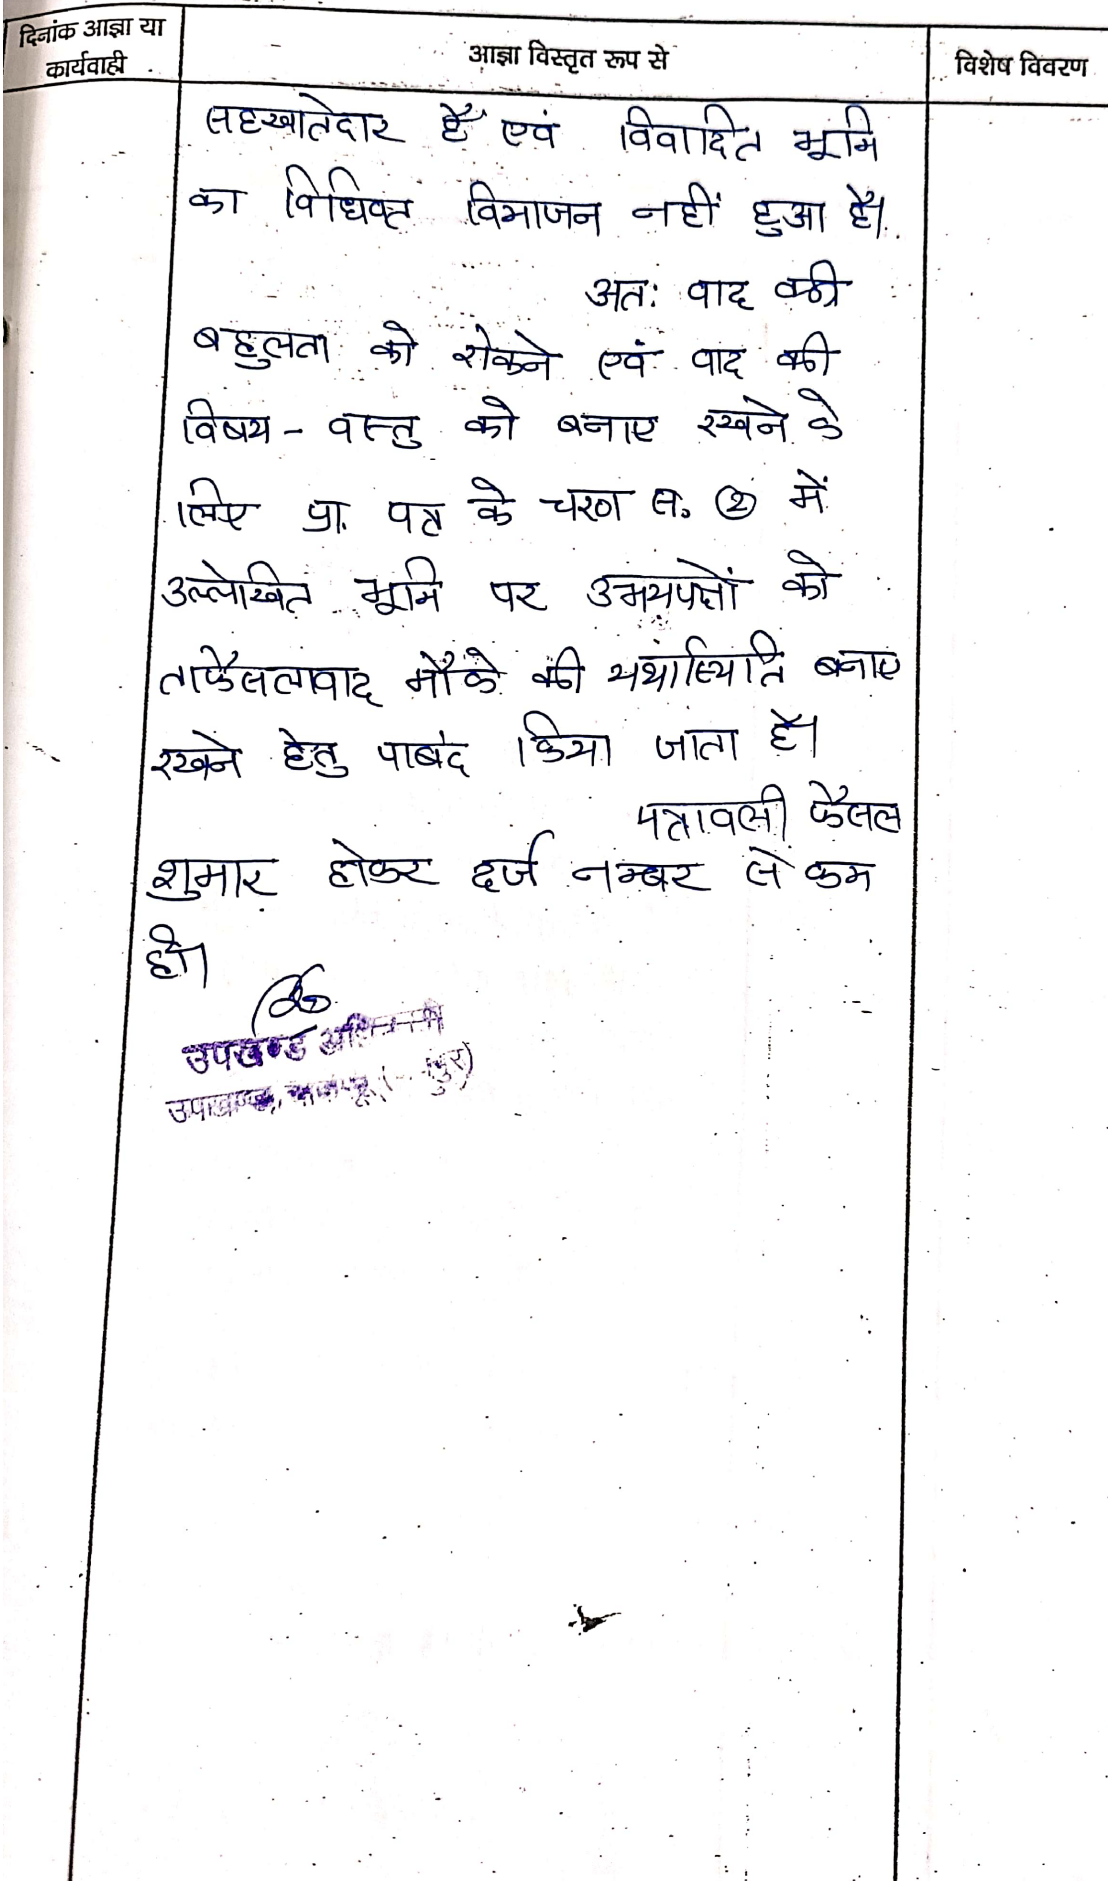 दिनांक आज्ञा या
कार्यवाही
आज्ञा विस्तृत रूप से
विशेष विवरण
सहखातेदार हैं एवं विवादित भूमि
का विधिवत विभाजन नहीं हुआ है।
अतः वाद की
बहुलता को रोकने एवं वाद की
विषय - वस्तु को बनाए रखने के
लिए प्रा. पत्र के चरण स. 2 में
उल्लेखित भूमि पर उभयपक्षों को
ताफैसलावाद मौके की यथास्थिति बनाए
रखने हेतु पाबंद किया जाता है।
पत्रावली फैसल
शुमार होकर दर्ज नम्बर से कम
हो।
उपखण्ड